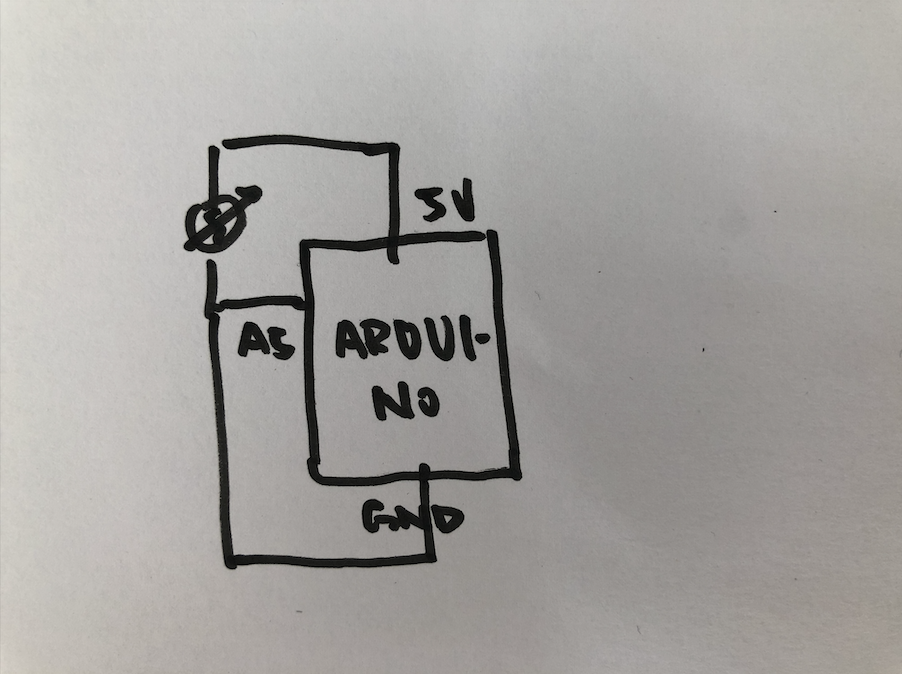 5V
A5
ARDUI-
NO
GND